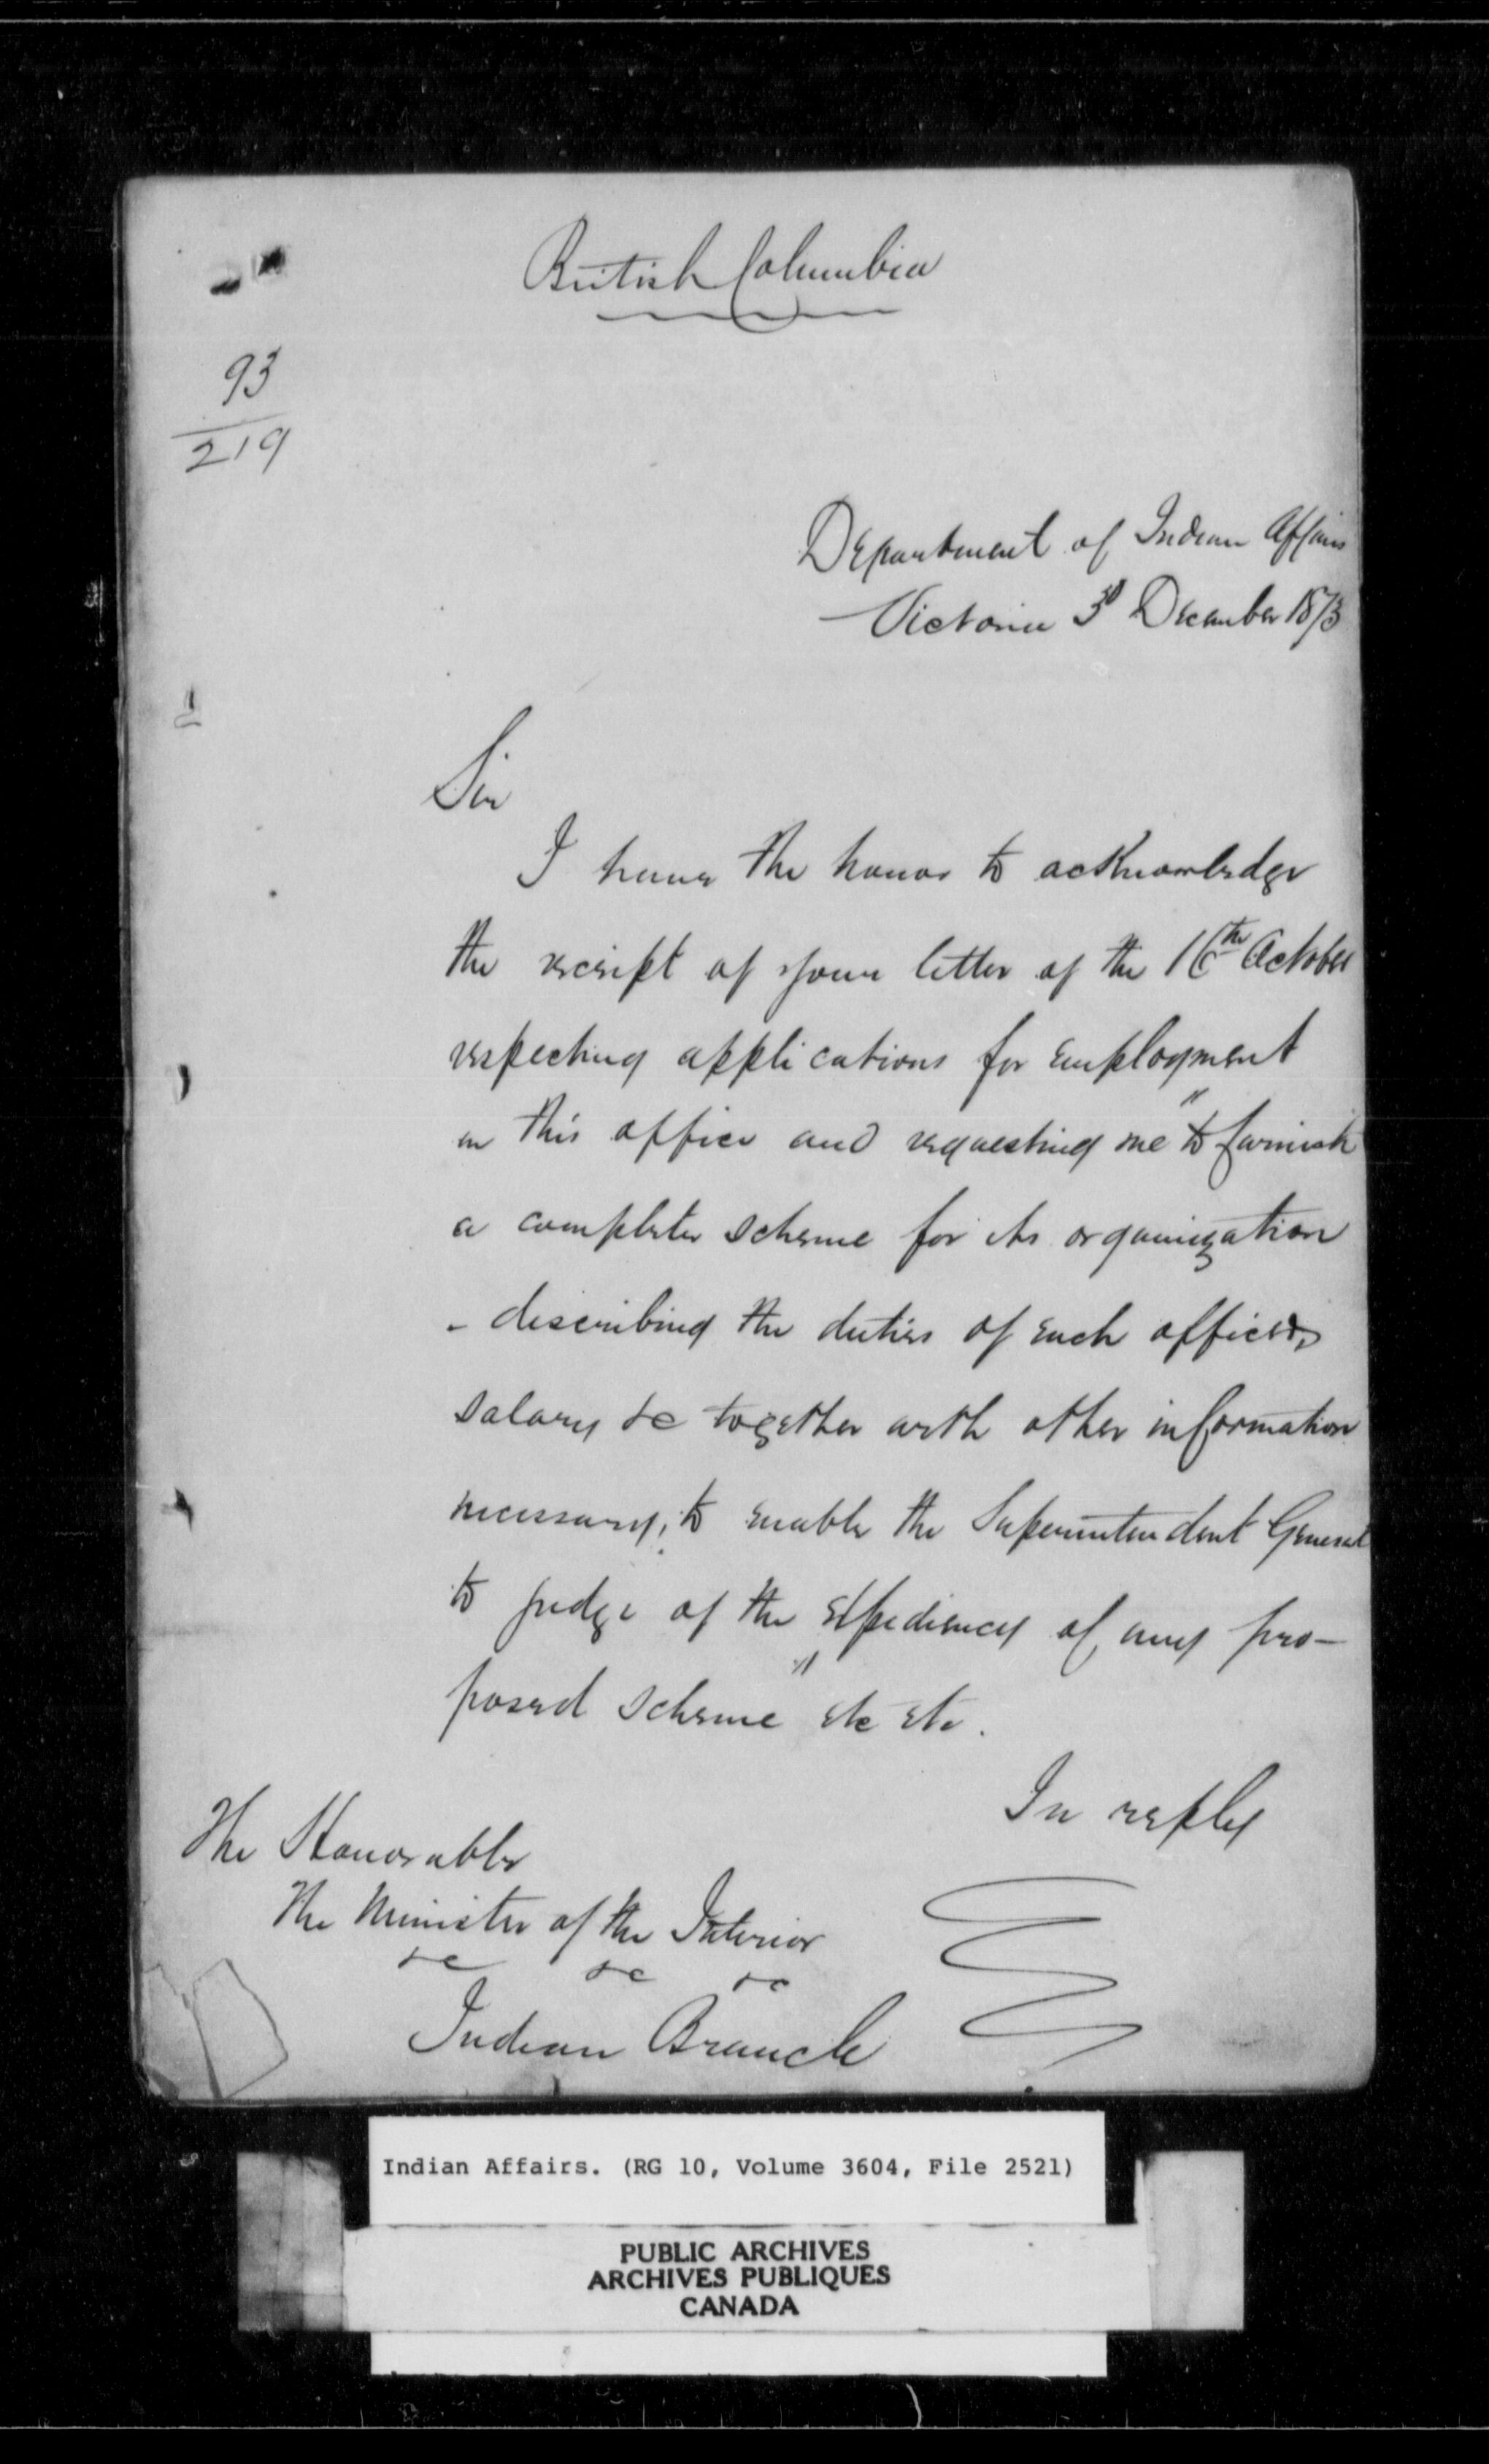 British Columbia
93
219
Department of Indian Affairs
Victoria 3d December 1873
Sir
I have the honor to acknowledge
the receipt of your letter of the 16th October
respecting applications for employment
in this office and requesting me "to furnish
a complete scheme for its organization
- describing the duties of each officer,
salary &c together with other information
necessary, to enable the Superintendent General
to judge of the expediency of any pro-
posed scheme" etc etc.
In reply
The Honorable
The Minister of the Interior
&c &c &c
Indian Branch
Indian Affairs. (RG 10, Volume 3604, File 2521)
PUBLIC ARCHIVES
ARCHIVES PUBLIQUES
CANADA